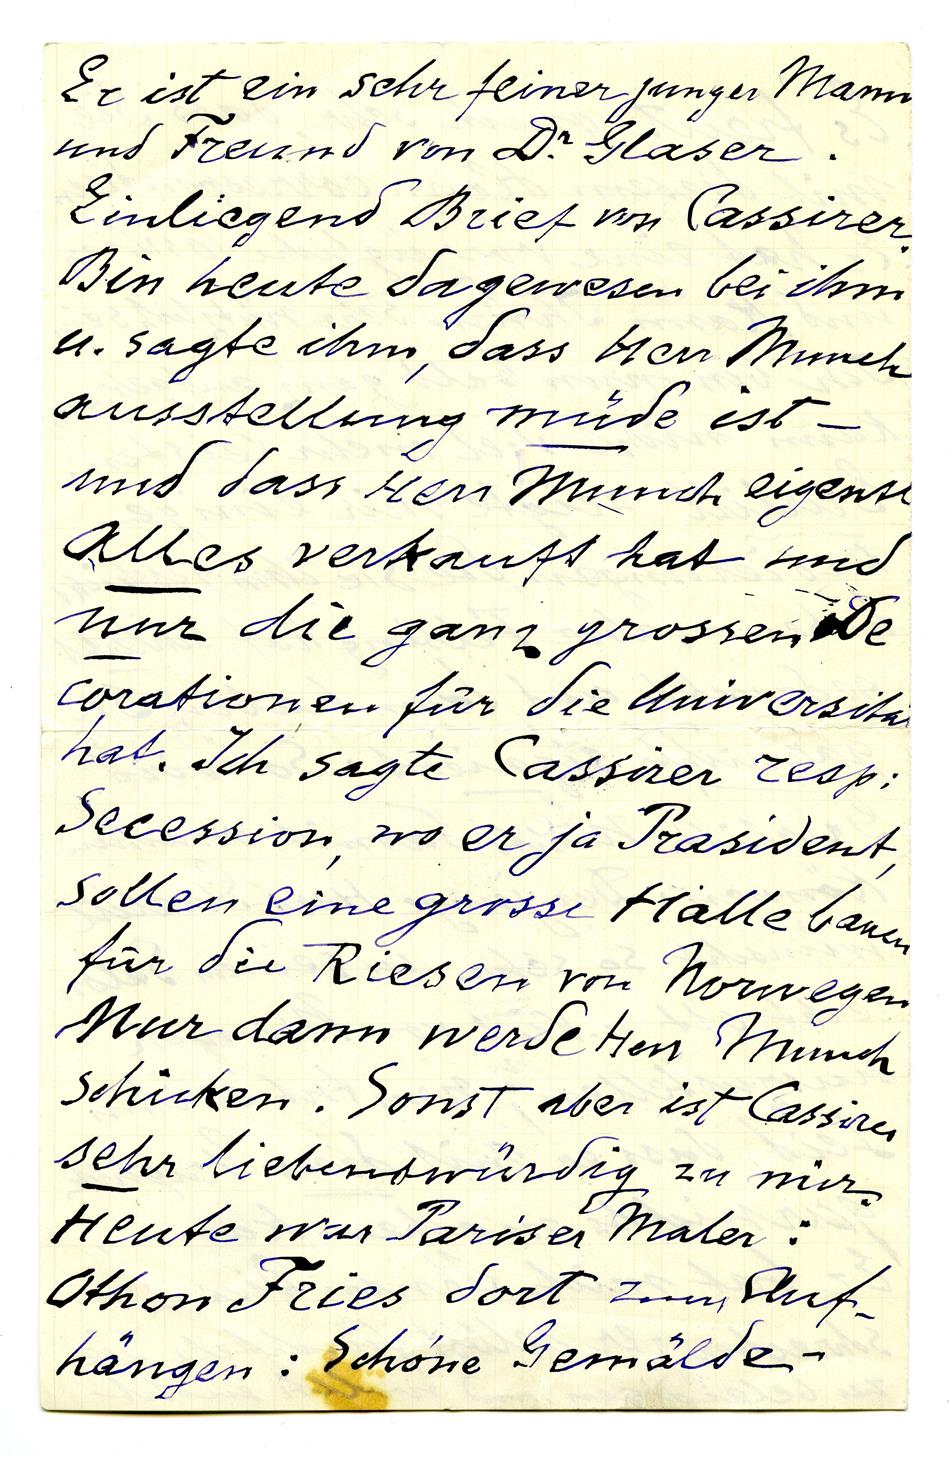 Er ist ein sehr feiner junger Mann
und Freund von Dr. Glaser.
Einliegend Brief von Cassirer.
Bin heute dagewesen bei ihm
u. sagte ihm, dass Herr Munch
ausstellung müde ist –
und dass Herr Munch eigentl
Alles verkauft hat und
nur die ganz grossen De
corationen für die Universität
hat. Ich sagte Cassirer resp:
Secession, wo er ja Präsident,
sollen eine grosse Halle bauen
für die Riesen von Norwegen
Nur dann werde Herr Munch
schicken. Sonst aber ist Cassirer
sehr liebenswürdig zu mir.
Heute war Pariser Maler:
Othon Fries dort zum Auf-
hängen: Schöne Gemälde –